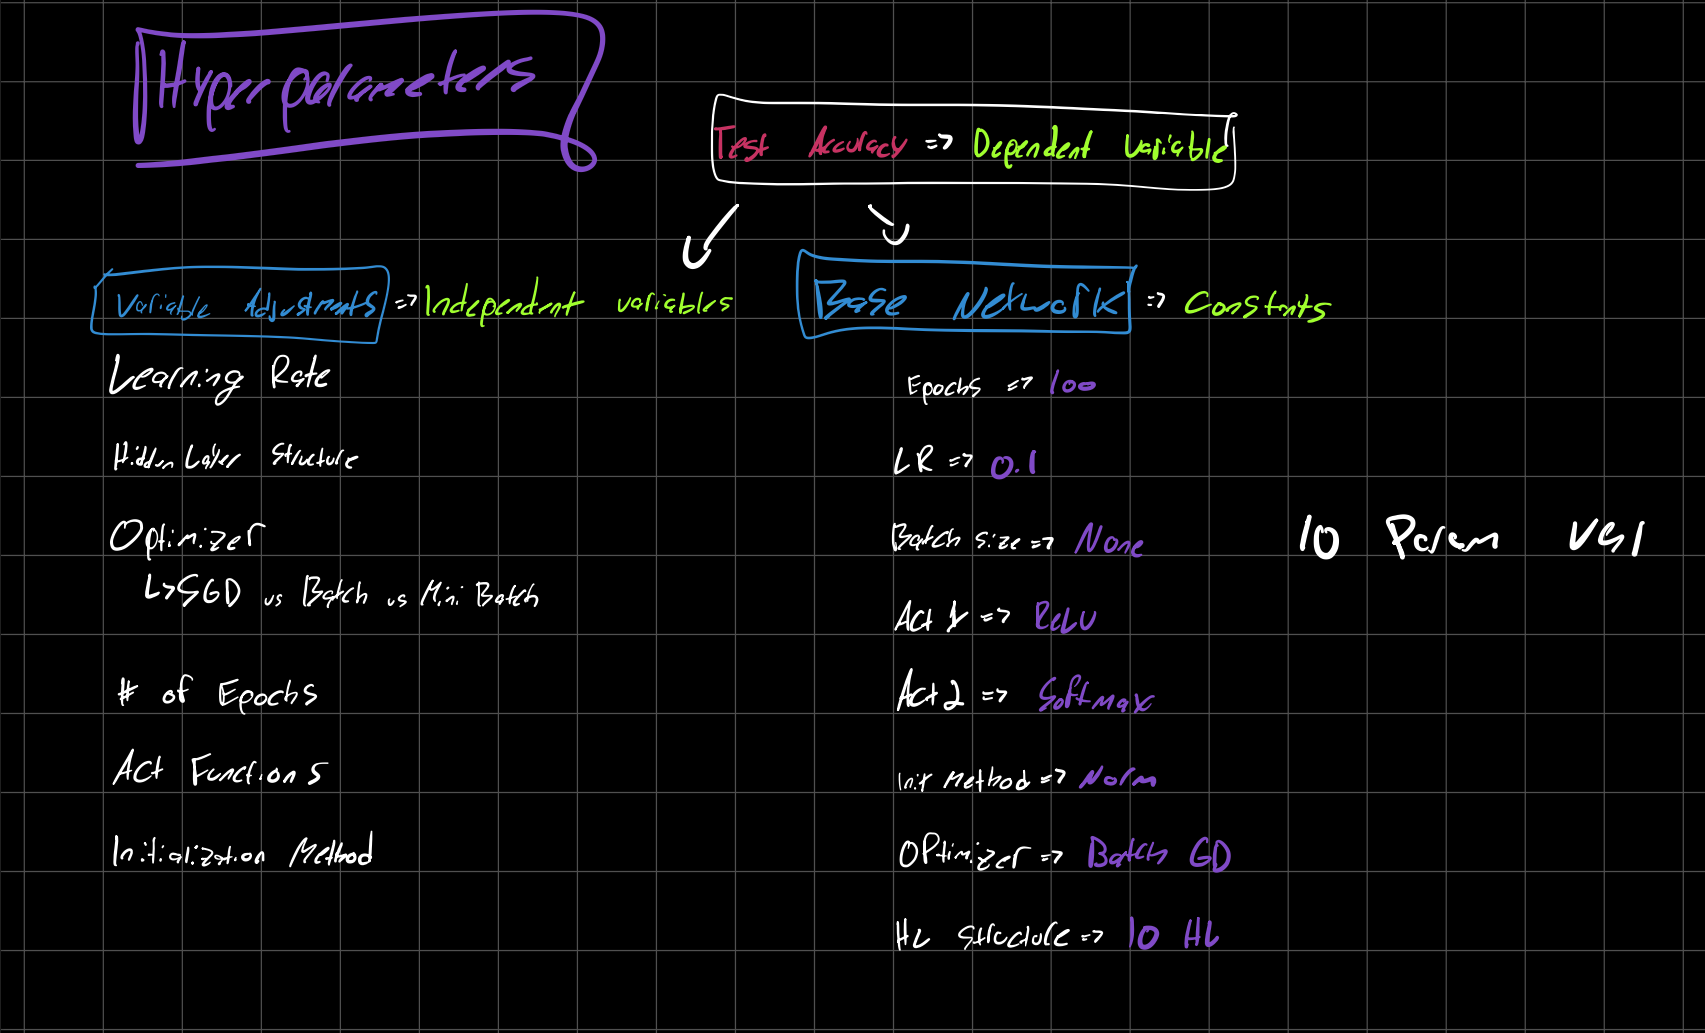 Hyperparameters
Test Accuracy => Dependent Variable
Variable Adjustments => Independent variables
Learning Rate
Hidden Layer Structure
Optimizer
L> SGD vs Batch vs Mini Batch
# of Epochs
Act Functions
Initialization Method
Base Network => Constnts
Epochs => 100
LR => 0.1
Batch size => None
Act 1 => ReLU
Act 2 => Softmax
Init Method => Norm
Optimizer => Batch GD
HL Structure => 10 HL
10 Param